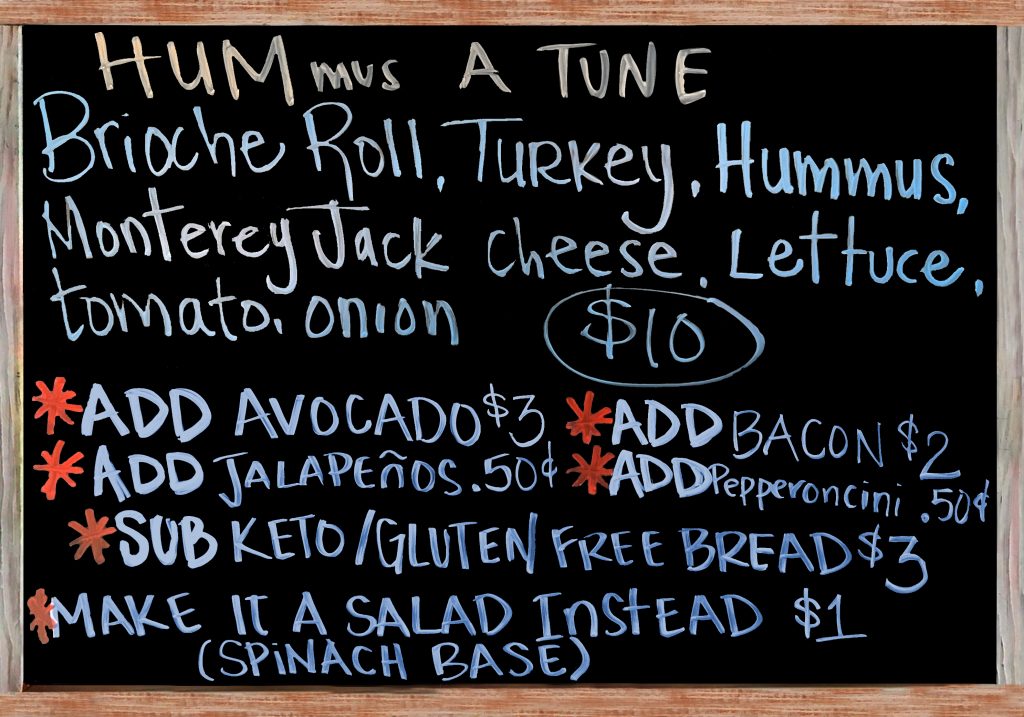 HUMmus A TUNE
Brioche Roll, Turkey, Hummus,
Monterey Jack cheese, Lettuce,
tomato, onion $10
*ADD AVOCADO $3 *ADD BACON $2
*ADD JALAPEÑOS .50¢ *ADD Pepperoncini .50¢
*SUB KETO/GLUTEN FREE BREAD $3
*MAKE IT A SALAD INSTEAD $1
(SPINACH BASE)